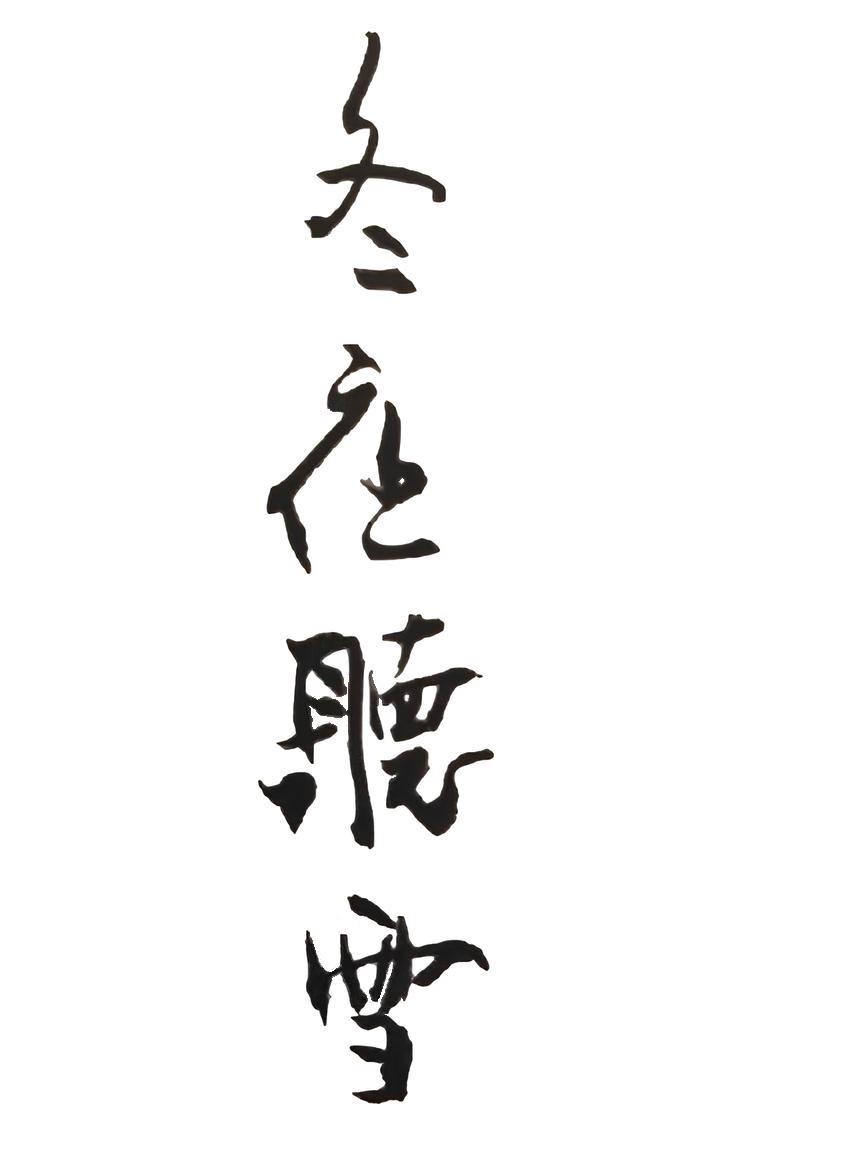 冬夜聽雪